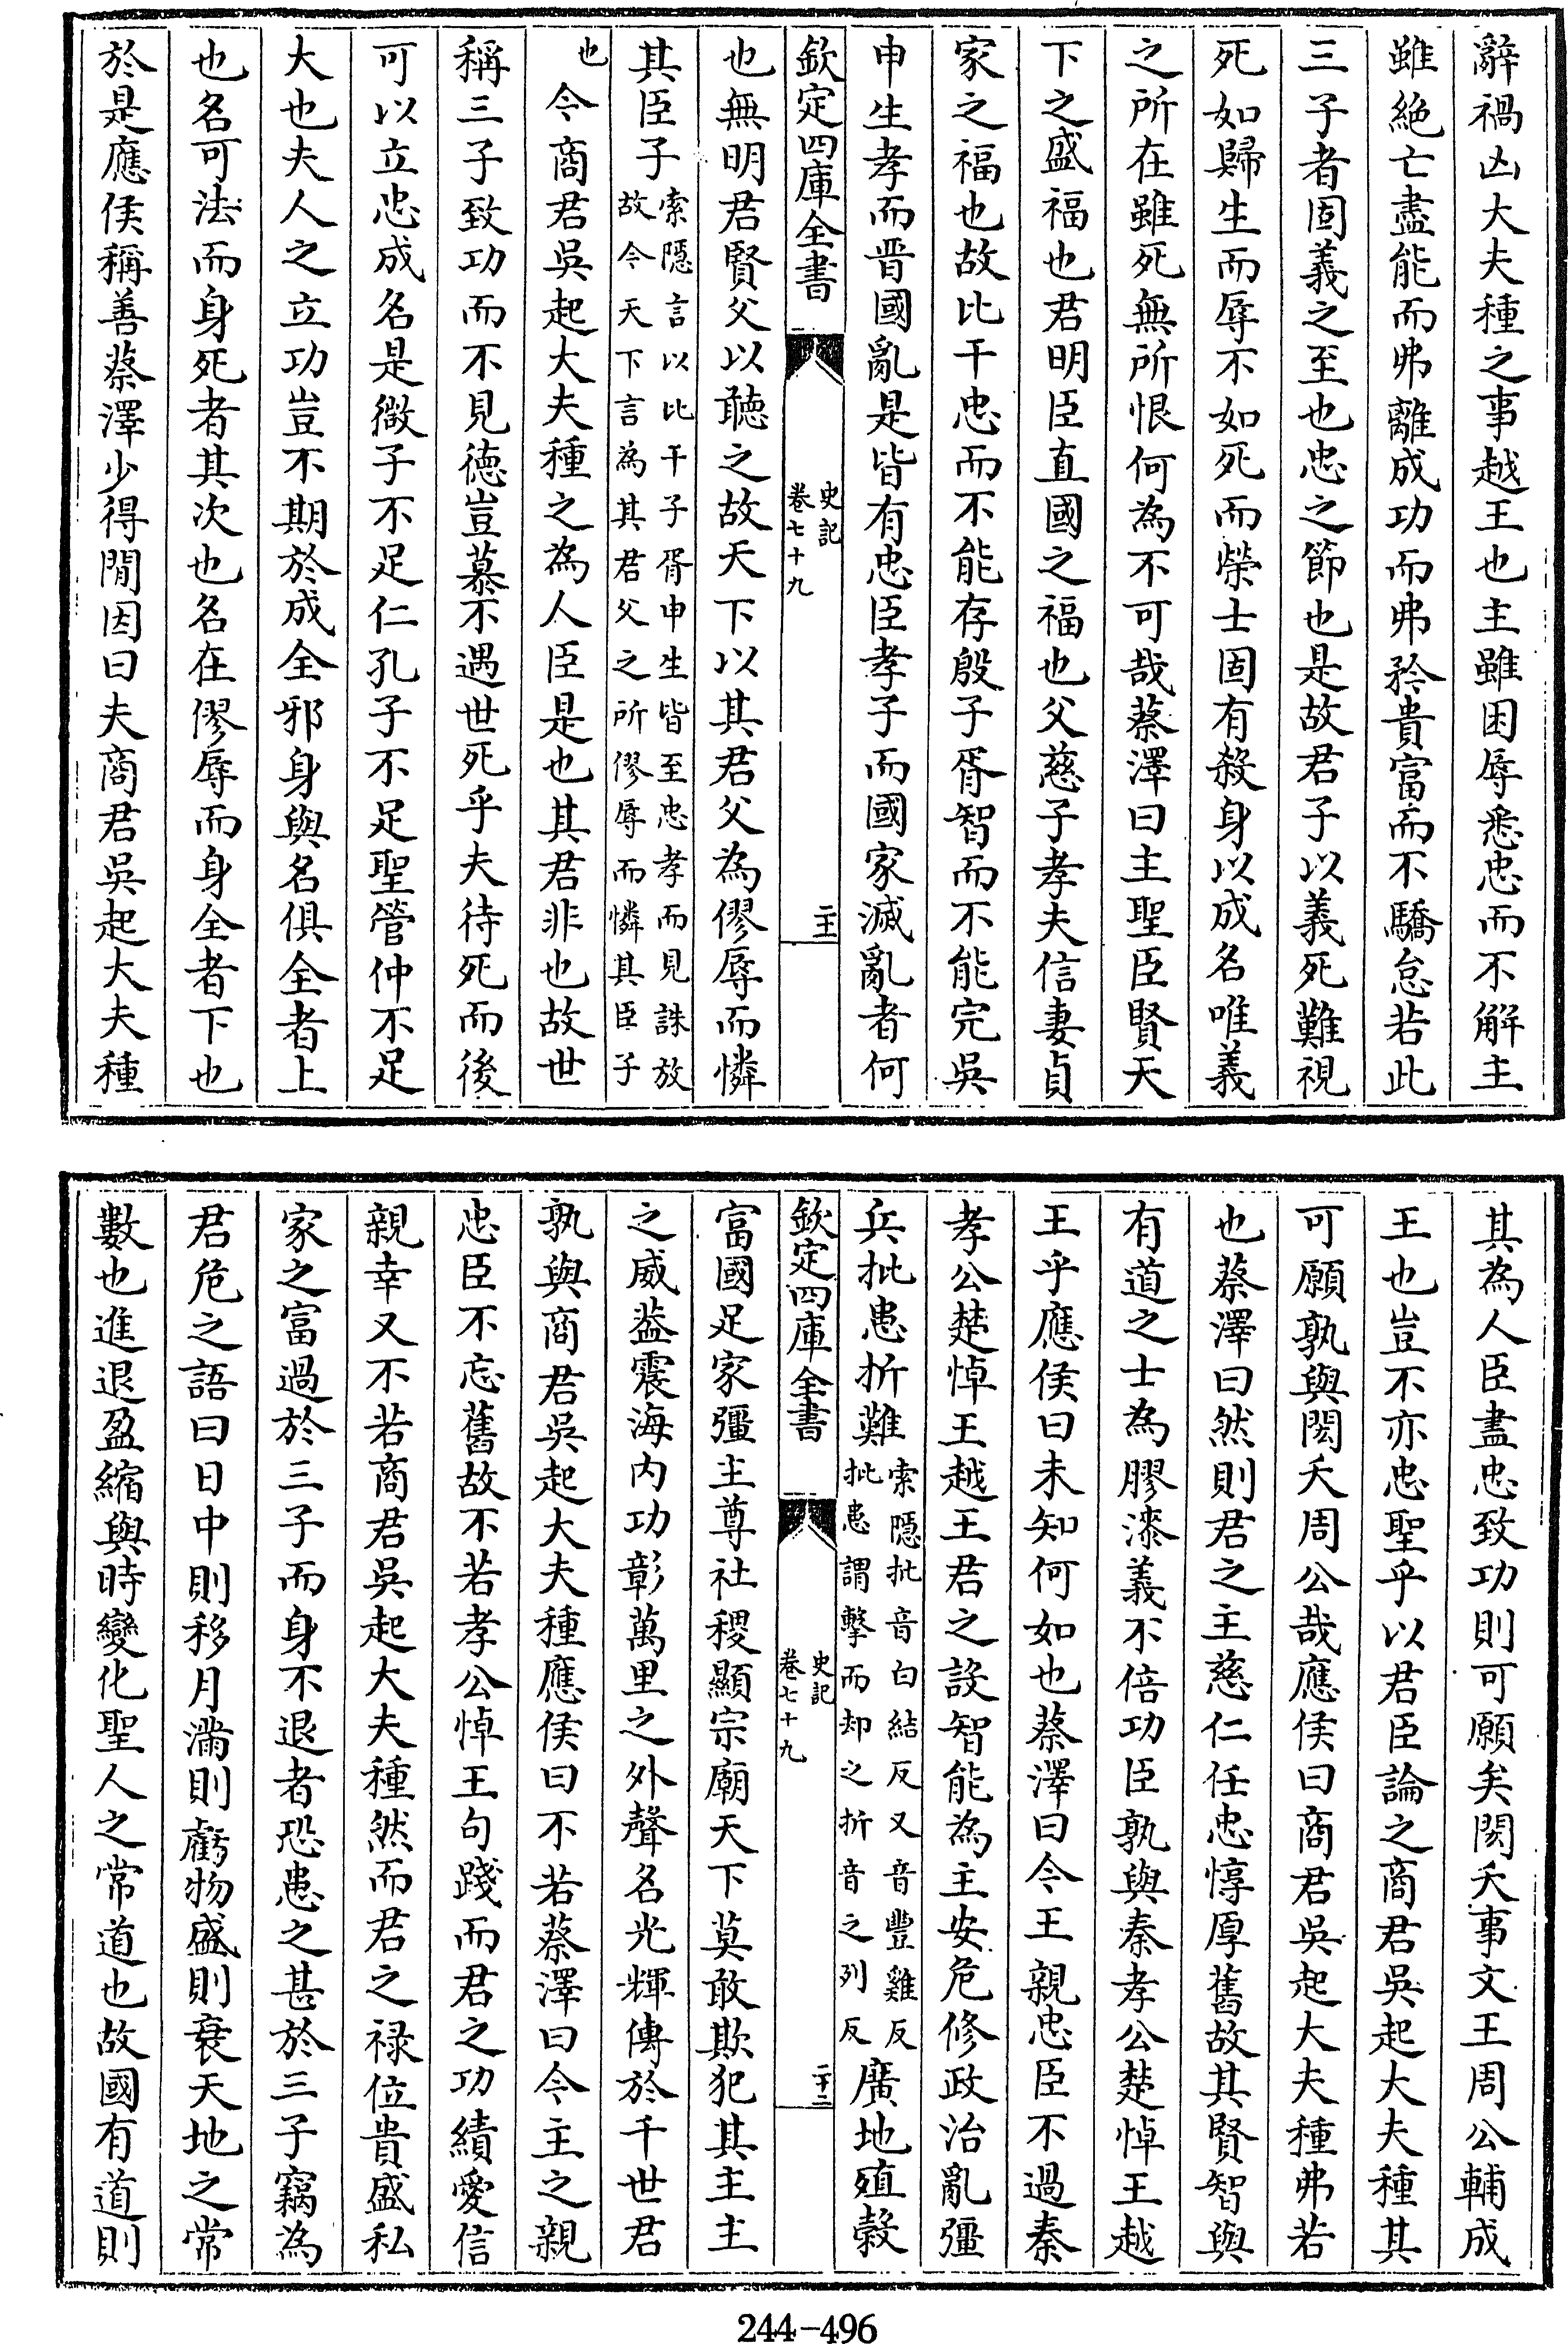 辭禍凶大夫種之事越王也主雖困辱悉忠而不解主
雖絶亡盡能而弗離成功而弗矜貴富而不驕怠若此
三子者固義之至也忠之節也是故君子以義死難視
死如歸生而辱不如死而榮士固有殺身以成名唯義
之所在雖死無所恨何為不可哉蔡澤曰主聖臣賢天
下之盛福也君明臣直國之福也父慈子孝夫信妻貞
家之福也故比干忠而不能存殷子胥智而不能完吳
申生孝而晋國亂是皆有忠臣孝子而國家滅亂者何
欽定四庫全書
史記
卷七十九
二十一
也無明君賢父以聴之故天下以其君父為僇辱而憐
其臣子索隠言以比干子胥申生皆至忠孝而見誅放
故今天下言為其君父之所僇辱而憐其臣子
也
令商君吳起大夫種之為人臣是也其君非也故世
稱三子致功而不見徳豈慕不遇世死乎夫待死而後
可以立忠成名是微子不足仁孔子不足聖管仲不足
大也夫人之立功豈不期於成全邪身與名俱全者上
也名可法而身死者其次也名在僇辱而身全者下也
於是應侯稱善蔡澤少得閒因曰夫商君吳起大夫種
其為人臣盡忠致功則可願矣閎夭事文王周公輔成
王也豈不亦忠聖乎以君臣論之商君吳起大夫種其
可願孰與閎夭周公哉應侯曰商君吳起大夫種弗若
也蔡澤曰然則君之主慈仁任忠惇厚舊故其賢智與
有道之士為膠漆義不倍功臣孰與秦孝公楚悼王越
王乎應侯曰未知何如也蔡澤曰今王親忠臣不過秦
孝公楚悼王越王君之設智能為主安危修政治亂彊
兵批患折難索隠批音白結反又音豐雞反
批患謂擊而却之折音之列反廣地殖榖
欽定四庫全書
史記
卷七十九
二十二
富國足家彊主尊社稷顯宗廟天下莫敢欺犯其主主
之威葢震海内功彰萬里之外聲名光輝傳於千世君
孰與商君吳起大夫種應侯曰不若蔡澤曰今主之親
忠臣不忘舊故不若孝公悼王句踐而君之功績愛信
親幸又不若商君吳起大夫種然而君之禄位貴盛私
家之富過於三子而身不退者恐患之甚於三子竊為
君危之語曰日中則移月滿則虧物盛則衰天地之常
數也進退盈縮與時變化聖人之常道也故國有道則
244-496